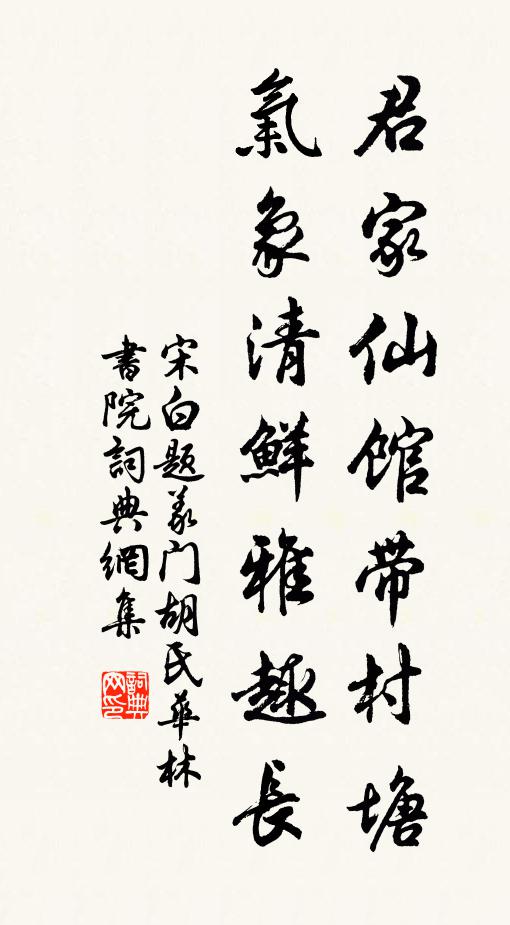 君家仙馆带村塘
氣象清鮮雅趣長
宋白题义门胡氏華林
書院詞典網集
詞典网印